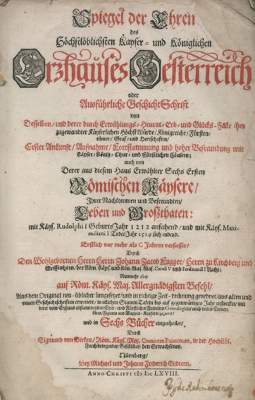 Spiegel der Ehren
des
Höchstlöblichsten Kayser- und Königlichen
Erzhauses Oesterreich
oder
Ausführliche GeschichtSchrift
von
Desselben, und derer durch Erwählungs- Heurat- Erb- und Glücks-Fälle ihm
zugewandter Käyserlichen HöchstWürde, Königreiche, Fürsten-
tümer, Graf- und Herrschaften
Erster Ankunft, Aufnahme, Fortstammung und hoher Befreundung mit
Käyser- König- Chur- und Fürstlichen Häusern;
auch von
Derer aus diesem Haus Erwählter Sechs Ersten
Römischen Käysere,
Ihrer Nachkommen und Befreundten,
Leben und Großthaten:
mit Käys. Rudolphi I GeburtsJahr 1212 anfahend, und mit Käys. Maxi-
miliani I TodesJahr 1519 sich endend.
Erstlich vor mehr als C Jahren verfasset,
Durch
Den Wohlgebornen Herrn Herrn Johann Jacob Fugger, Herrn zu Kirchberg und
Weissenhorn, der Röm. Käys. und Kön. Maj. Maj. Caroli V und Ferdinandi I Raht;
Nunmehr aber
auf Röm. Käys. Maj. Allergnädigsten Befehl,
und in Sechs Bücher eingetheilet,
Durch
Sigmund von Birken, Röm. Käys. Maj. Comitem Palatinum, in der Hochlöbl.
Fruchtbringenden Gesellschaft den Erwachsenen.
Nürnberg,
bey Michael und Johann Friderich Endtern.
ANNO CHRISTI M DC LXVIII.